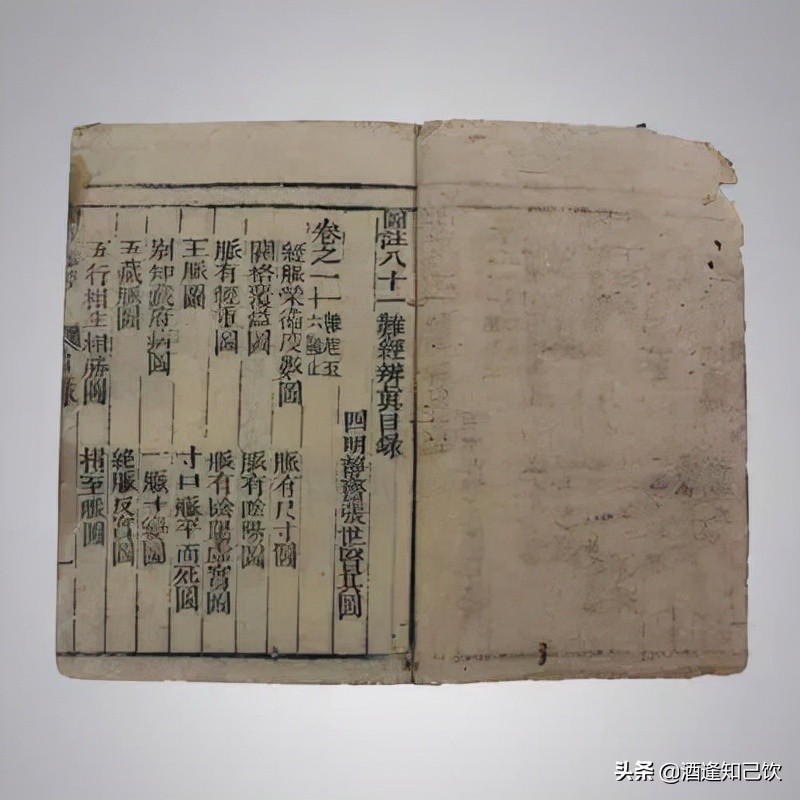 圖註八十一難經辨真目錄
四明靜齋張世賢 圖
卷之一 難起至
十六難止
經脈榮衛度數圖
脈有尺寸圖
關格覆溢圖
脈有陰陽圖
脈有輕重圖
脈有陰陽虛實圖
王脈圖
寸口脈平而死圖
別知臟府病圖
一脈十變圖
五臟脈圖
絕脈反實圖
五行相生相勝圖
損至脈圖
頭条 @酒逢知己饮